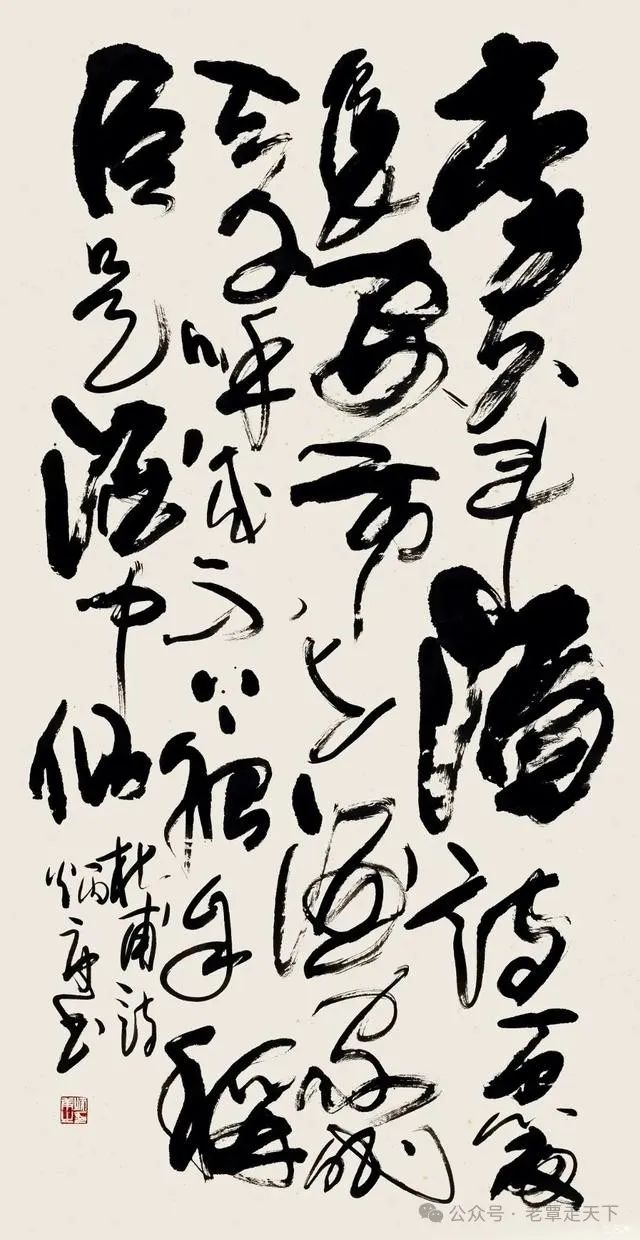 李白斗酒诗百篇
长安市上酒家眠
天子呼来不上船自称
臣是酒中仙
杜甫诗
炳书
公众号·老覃走天下